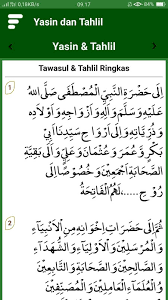 0,18K/s 09.17
Yasin dan Tahlil
Yasin & Tahlil
Tawasul & Tahlil Ringkas
1
اِلَى حَضْرَةِ النَّبِيِّ الْمُصْطَفَى صَلَّى اللهُ
عَلَيْهِ وَسَلَّمَ وَاٰلِهِ وَاَزْوَاجِهِ وَاَوْلَادِهِ
وَذُرِّيَّاتِهِ وَاِلَى اَرْوَاحِ سَيِّدِنَا اَبِي
بَكْرٍ وَعُمَرَ وَعُثْمَانَ وَعَلِيٍّ وَاِلَى بَقِيَّةِ
الصَّحَابَةِ اَجْمَعِيْنَ وَخُصُوْصًا اِلَى
رُوْحِ ... لَهُمُ الْفَاتِحَةُ
2
ثُمَّ اِلَى حَضَرَاتِ اِخْوَانِهِ مِنَ الْاَنْبِيَاءِ
وَالْمُرْسَلِيْنَ وَالْاَوْلِيَاءِ وَالشُّهَدَاءِ
وَالصَّالِحِيْنَ وَالصَّحَابَةِ وَالتَّابِعِيْنَ
وَالْعُلَمَاءِ الْعَامِلِيْنَ وَالْمُصَنِّفِيْنَ